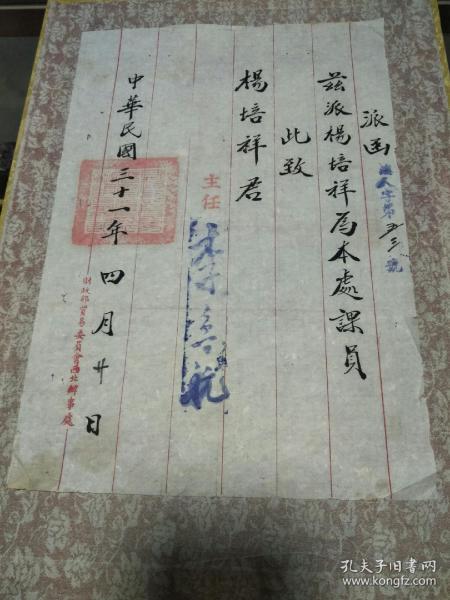 派函
人字第五三號
茲派楊培祥為本處課員
此致
楊培祥君
主任
中華民國三十一年四月廿日
財政部貿易委員會西北辦事處
孔夫子旧书网
www.kongfz.com